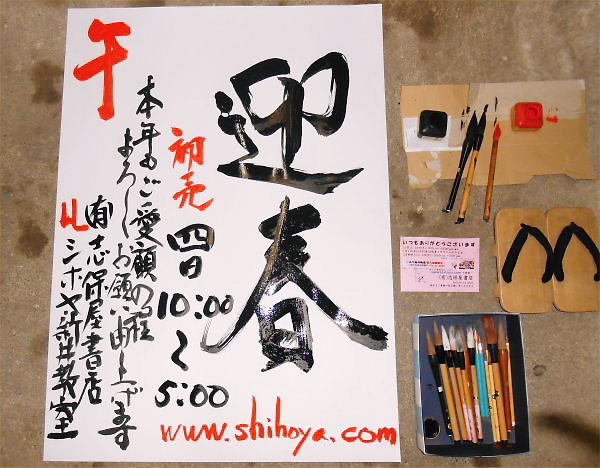 迎春
初売
四日
10:00
～
5:00
午
本年もご愛顧の程
よろしくお願い申し上げます
(有)志保屋書店
シホヤ新井教室
www.shihoya.com
いつもありがとうございます
(有)志保屋書店